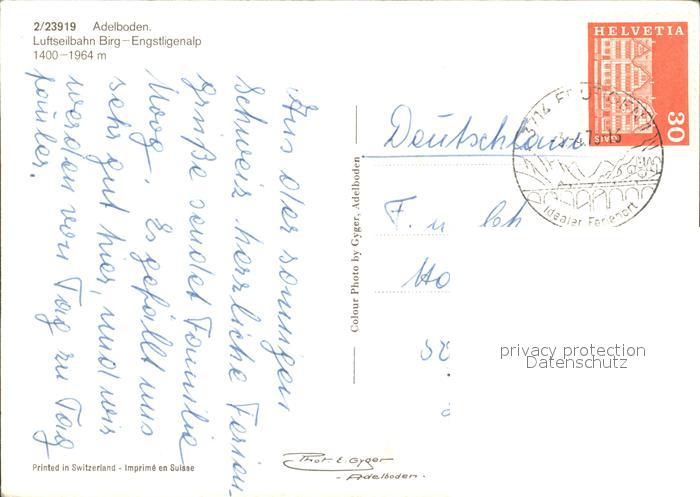 2/23919 Adelboden.
Luftseilbahn Birg–Engstligenalp
1400–1964 m
Aus der sonnigen
Schweiz herzliche Ferien-
grüße sendet Familie
Moog. Es gefällt uns
sehr gut hier, und wir
werden von Tag zu Tag
fauler.
Printed in Switzerland - Imprimé en Suisse
Colour Photo by Gyger, Adelboden
Phot. E. Gyger
- Adelboden -
HELVETIA
30
GAIS
3714 FRUTIGEN
Idealer Ferienort
Deutschland
privacy protection
Datenschutz